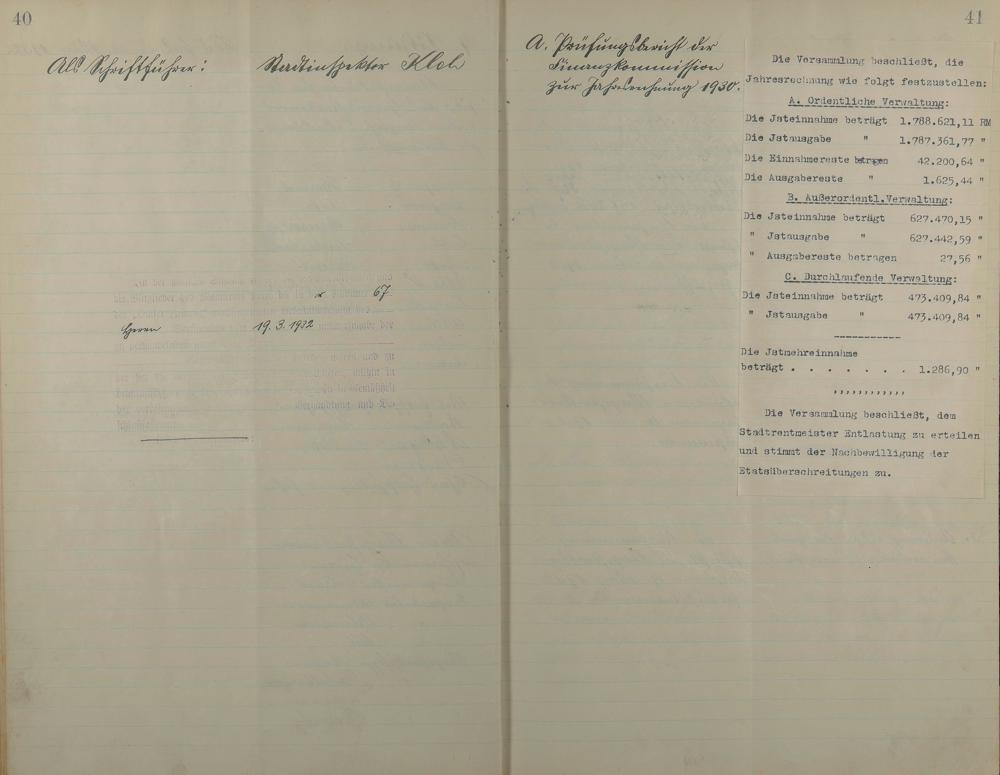 40
Als Schriftführer: Stadtinspektor
67.
Herrn 19. 3. 1932
41
A. Prüfungsbericht der
Finanzkommission
zur Jahresrechnung 1930.
Die Versammlung beschließt, die
Jahresrechnung wie folgt festzustellen:
A. Ordentliche Verwaltung:
Die Jsteinnahme beträgt 1.788.621,11 RM
Die Jstausgabe " 1.787.361,77 "
Die Einnahmereste betragen 42.200,64 "
Die Ausgabereste " 1.625,44 "
B. Außerordentl.Verwaltung:
Die Jsteinnahme beträgt 627.470,15 "
" Jstausgabe " 627.442,59 "
" Ausgabereste betragen 27,56 "
C. Durchlaufende Verwaltung:
Die Jsteinnahme beträgt 473.409,84 "
" Jstausgabe " 473.409,84 "
-----------
Die Jstmehreinnahme
beträgt . . . . . . . 1.286,90 "
,,,,,,,,,,,,
Die Versammlung beschließt, dem
Stadtrentmeister Entlastung zu erteilen
und stimmt der Nachbewilligung der
Etatsüberschreitungen zu.